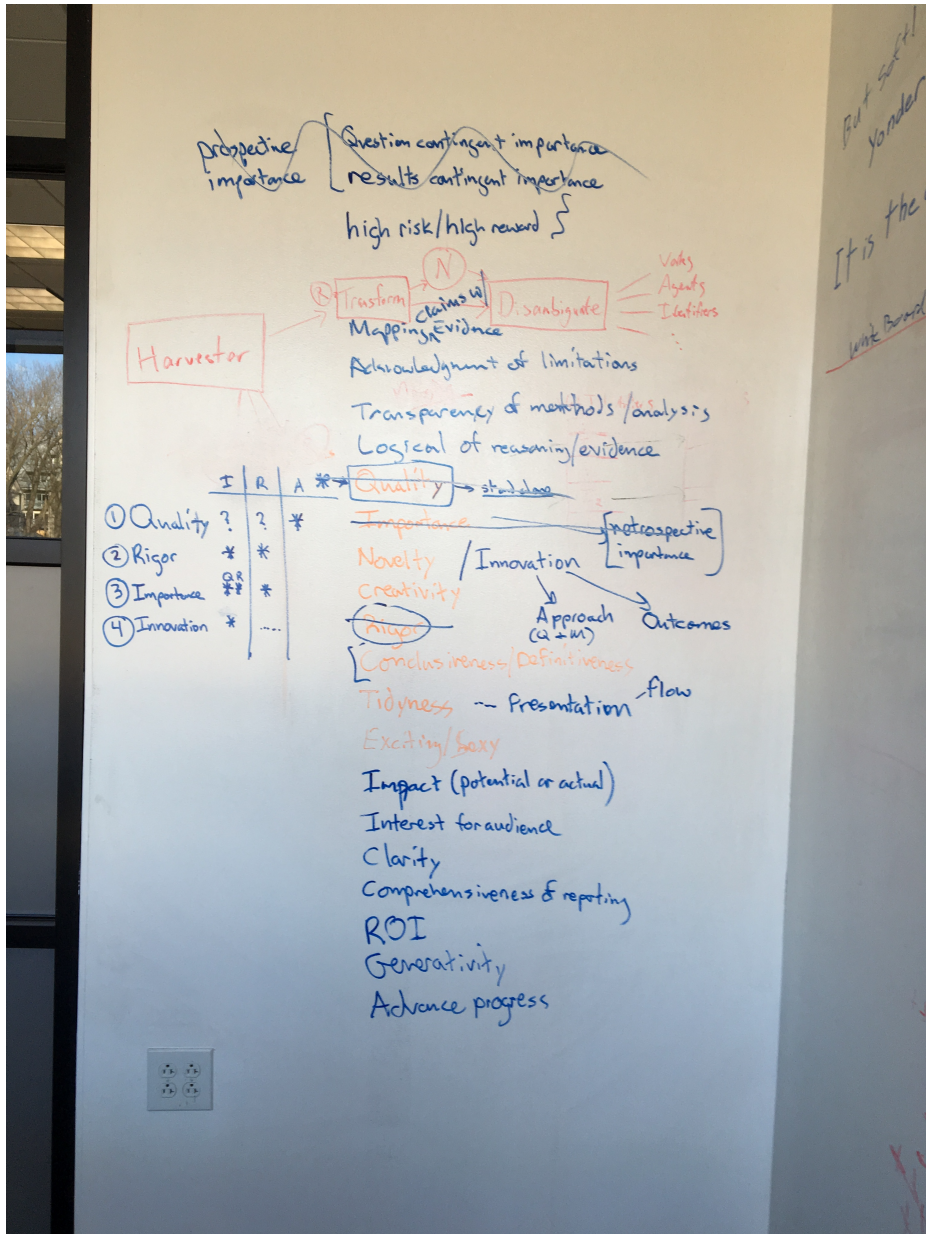 prospective importance
Question contingent importance
results contingent importance
high risk/high reward
N
R Trasform
claims w/
Disambiguate
Votes
Agents
Identifiers
Harvestor
Mapping Evidence
Acknowledgment of limitations
Transparency of methods/analysis
Logical of reasoning/evidence
I R A * Quality → standalone
1 Quality ? ? *
Importance
retrospective importance
2 Rigor * *
Novelty / Innovation
QR
3 Importance ** *
Creativity
Approach
(Q + M)
Outcomes
4 Innovation * .....
Rigor
Conclusiveness/Definitiveness
Tidyness -- Presentation flow
Exciting/Sexy
Impact (potential or actual)
Interest for audience
Clarity
Comprehensiveness of reporting
ROI
Generativity
Advance progress
But soft!
yonder
It is the
White Board